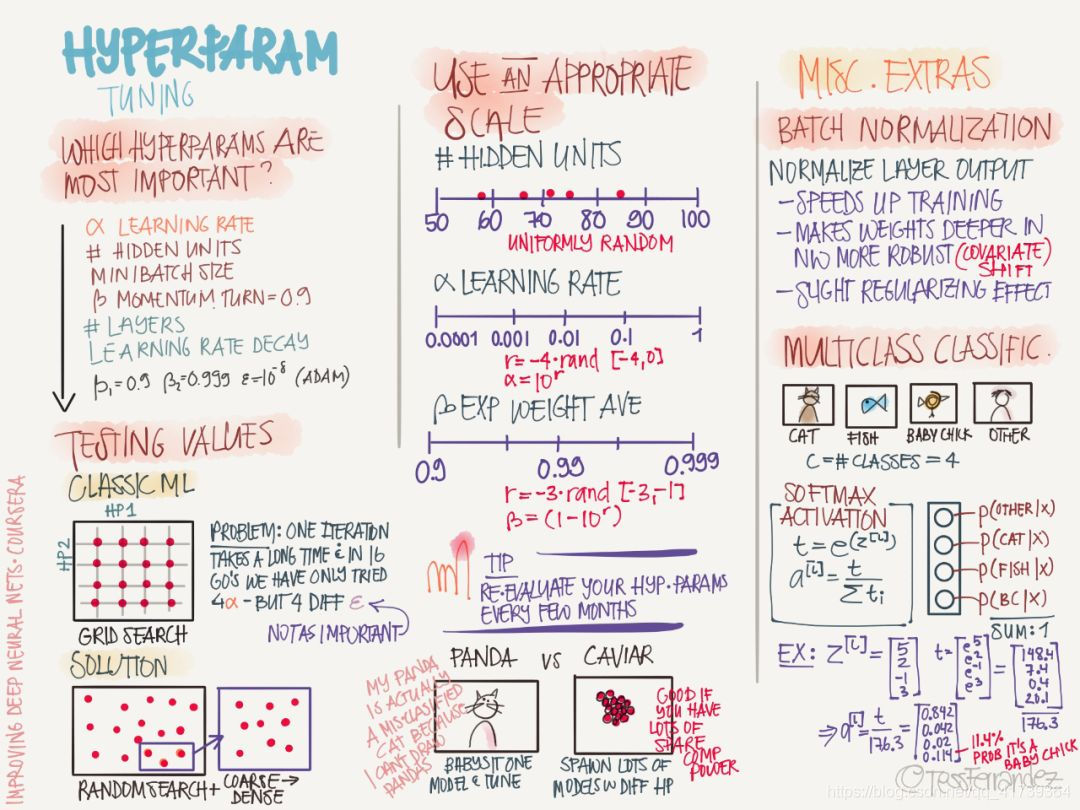 HYPERPARAM
TUNING
WHICH HYPERPARAMS ARE
MOST IMPORTANT?
α LEARNING RATE
# HIDDEN UNITS
MINIBATCH SIZE
β MOMENTUM TURN = 0.9
# LAYERS
LEARNING RATE DECAY
β₁=0.9 β₂=0.999 ε=10⁻⁸ (ADAM)
TESTING VALUES
CLASSIC ML
HP1
HP2
PROBLEM: ONE ITERATION
TAKES A LONG TIME & IN 16
GO'S WE HAVE ONLY TRIED
4α - BUT 4 DIFF ε
NOT AS IMPORTANT
GRID SEARCH
SOLUTION
RANDOM SEARCH + COARSE →
DENSE
IMPROVING DEEP NEURAL NETS · COURSERA
USE AN APPROPRIATE
SCALE
# HIDDEN UNITS
50 60 70 80 90 100
UNIFORMLY RANDOM
α LEARNING RATE
0.0001 0.001 0.01 0.1 1
r=-4·rand [-4,0]
α=10ʳ
β EXP WEIGHT AVE
0.9 0.99 0.999
r=-3·rand [-3,-1]
β=(1-10ʳ)
TIP
RE-EVALUATE YOUR HYP.PARAMS
EVERY FEW MONTHS
PANDA VS CAVIAR
MY PANDA
IS ACTUALLY
A MISCLASIFIED
CAT BECAUSE
I CAN'T DRAW
PANDAS
BABYSIT ONE
MODEL & TUNE
GOOD IF
YOU HAVE
LOTS OF
SHARE
COMP
POWER
SPAWN LOTS OF
MODELS W DIFF HP
MISC. EXTRAS
BATCH NORMALIZATION
NORMALIZE LAYER OUTPUT
- SPEEDS UP TRAINING
- MAKES WEIGHTS DEEPER IN
NW MORE ROBUST (COVARIATE)
SHIFT
- SLIGHT REGULARIZING EFFECT
MULTICLASS CLASSIFIC.
CAT FISH BABY CHICK OTHER
C = # CLASSES = 4
SOFTMAX
ACTIVATION
t = e^(z^[L])
a^[L] = t / Σtᵢ
P(OTHER|X)
P(CAT|X)
P(FISH|X)
P(BC|X)
SUM: 1
EX: Z^[L] = [5 2 -1 3] t = [e⁵ e² e⁻¹ e³] = [148.4 7.4 0.4 20.1]
176.3
⇒ a^[L] = t / 176.3 = [0.842 0.042 0.02 0.114]
11.4%
PROB IT'S A
BABY CHICK
©TessFerrandez